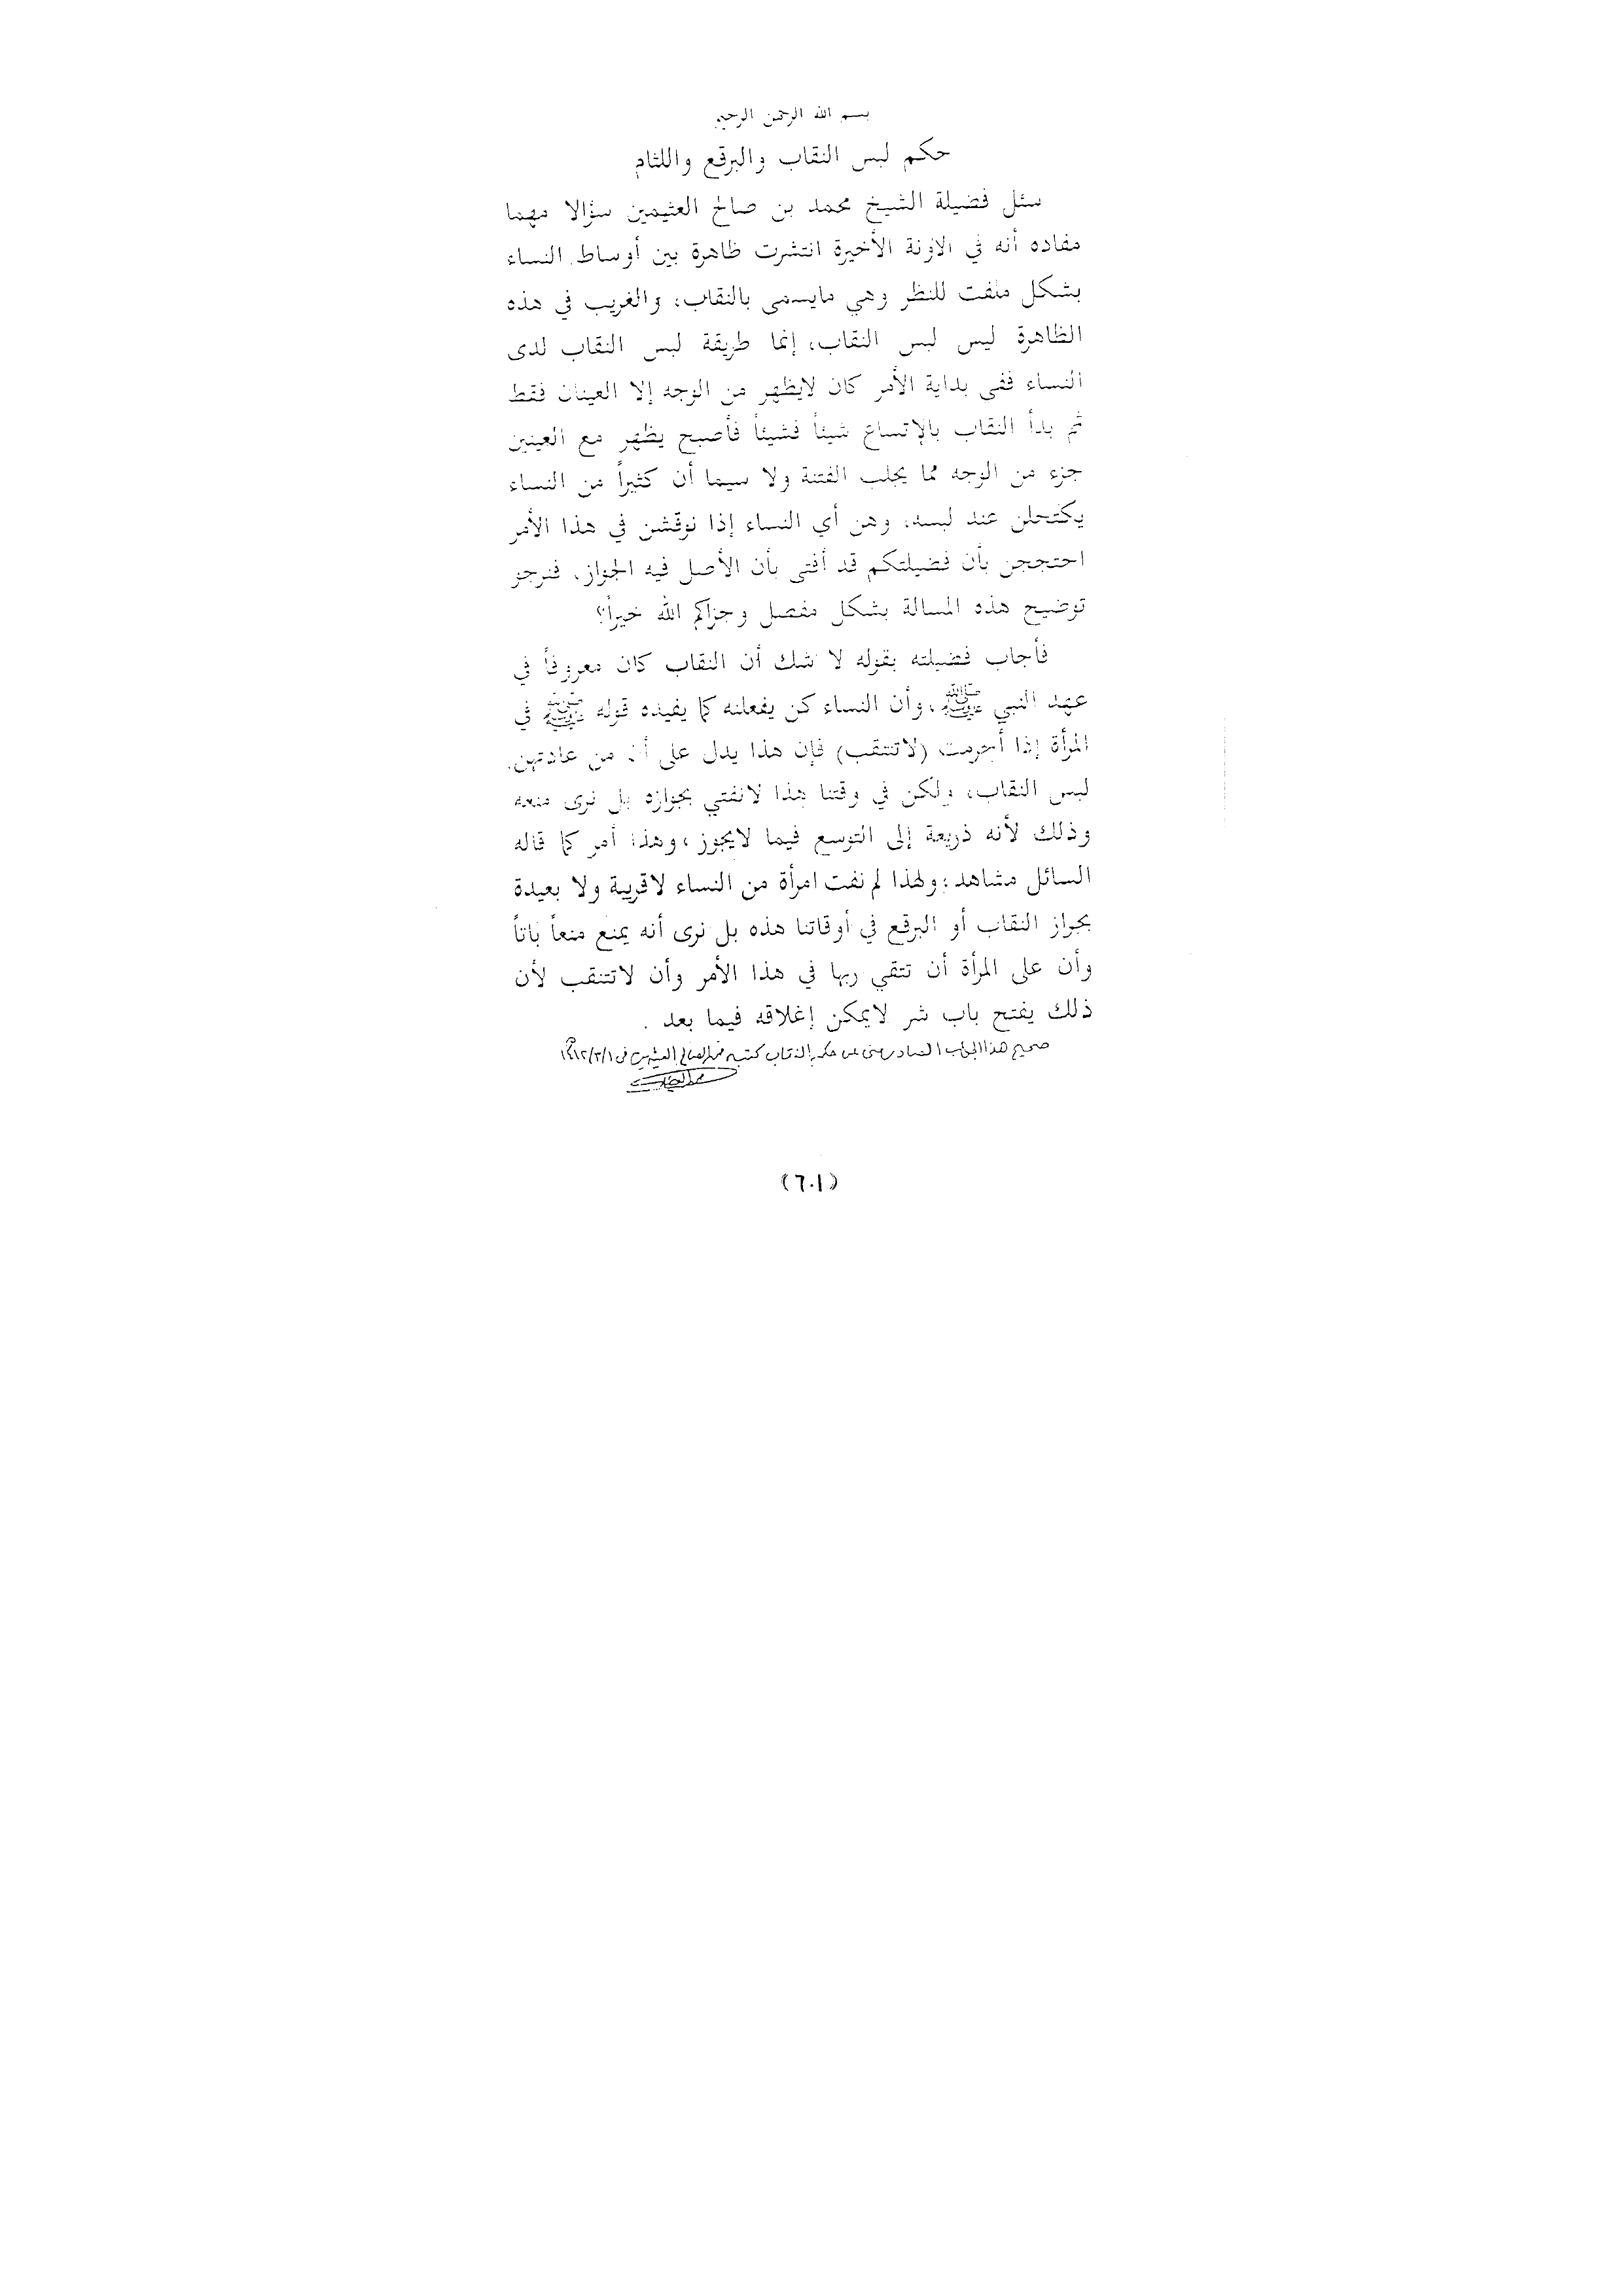 بسم الله الرحمن الرحيم
حكم لبس النقاب والبرقع واللثام
سئل فضيلة الشيخ محمد بن صالح العثيمين سؤالا مهما
مفاده أنه في الاونة الأخيرة انتشرت ظاهرة بين أوساط النساء
بشكل ملفت للنظر وهي مايسمى بالنقاب، والغريب في هذه
الظاهرة ليس لبس النقاب، إنما طريقة لبس النقاب لدى
النساء ففي بداية الأمر كان لايظهر من الوجه إلا العينان فقط
ثم بدأ النقاب بالإتساع شيئاً فشيئاً فأصبح يظهر مع العينين
جزء من الوجه مما يجلب الفتنة ولا سيما أن كثيراً من النساء
يكتحلن عند لبسه، وهن أي النساء إذا نوقشن في هذا الأمر
احتججن بأن فضيلتكم قد أفتى بأن الأصل فيه الجواز، فنرجو
توضيح هذه المسالة بشكل مفصل وجزاكم الله خيراً؟
فأجاب فضيلته بقوله لا شك أن النقاب كان معروفاً في
عهد النبي ﷺ، وأن النساء كن يفعلنه كما يفيده قوله ﷺ في
المرأة إذا أحرمت (لاتنتقب) فإن هذا يدل على أن من عادتهن
لبس النقاب، ولكن في وقتنا هذا لانفتي بجوازه بل نرى منعه
وذلك لأنه ذريعة إلى التوسع فيما لايجوز، وهذا أمر كما قاله
السائل مشاهد؛ ولهذا لم نفت امرأة من النساء لاقريبة ولا بعيدة
بجواز النقاب أو البرقع في أوقاتنا هذه بل نرى أنه يمنع منعاً باتاً
وأن على المرأة أن تتقي ربها في هذا الأمر وأن لاتتنقب لأن
ذلك يفتح باب شر لايمكن إغلاقه فيما بعد .
صحيح هذا الجواب الصادر مني عن حكم النقاب كتبه محمد الصالح العثيمين في ١٤١٢/٣/١
(٦٠١)